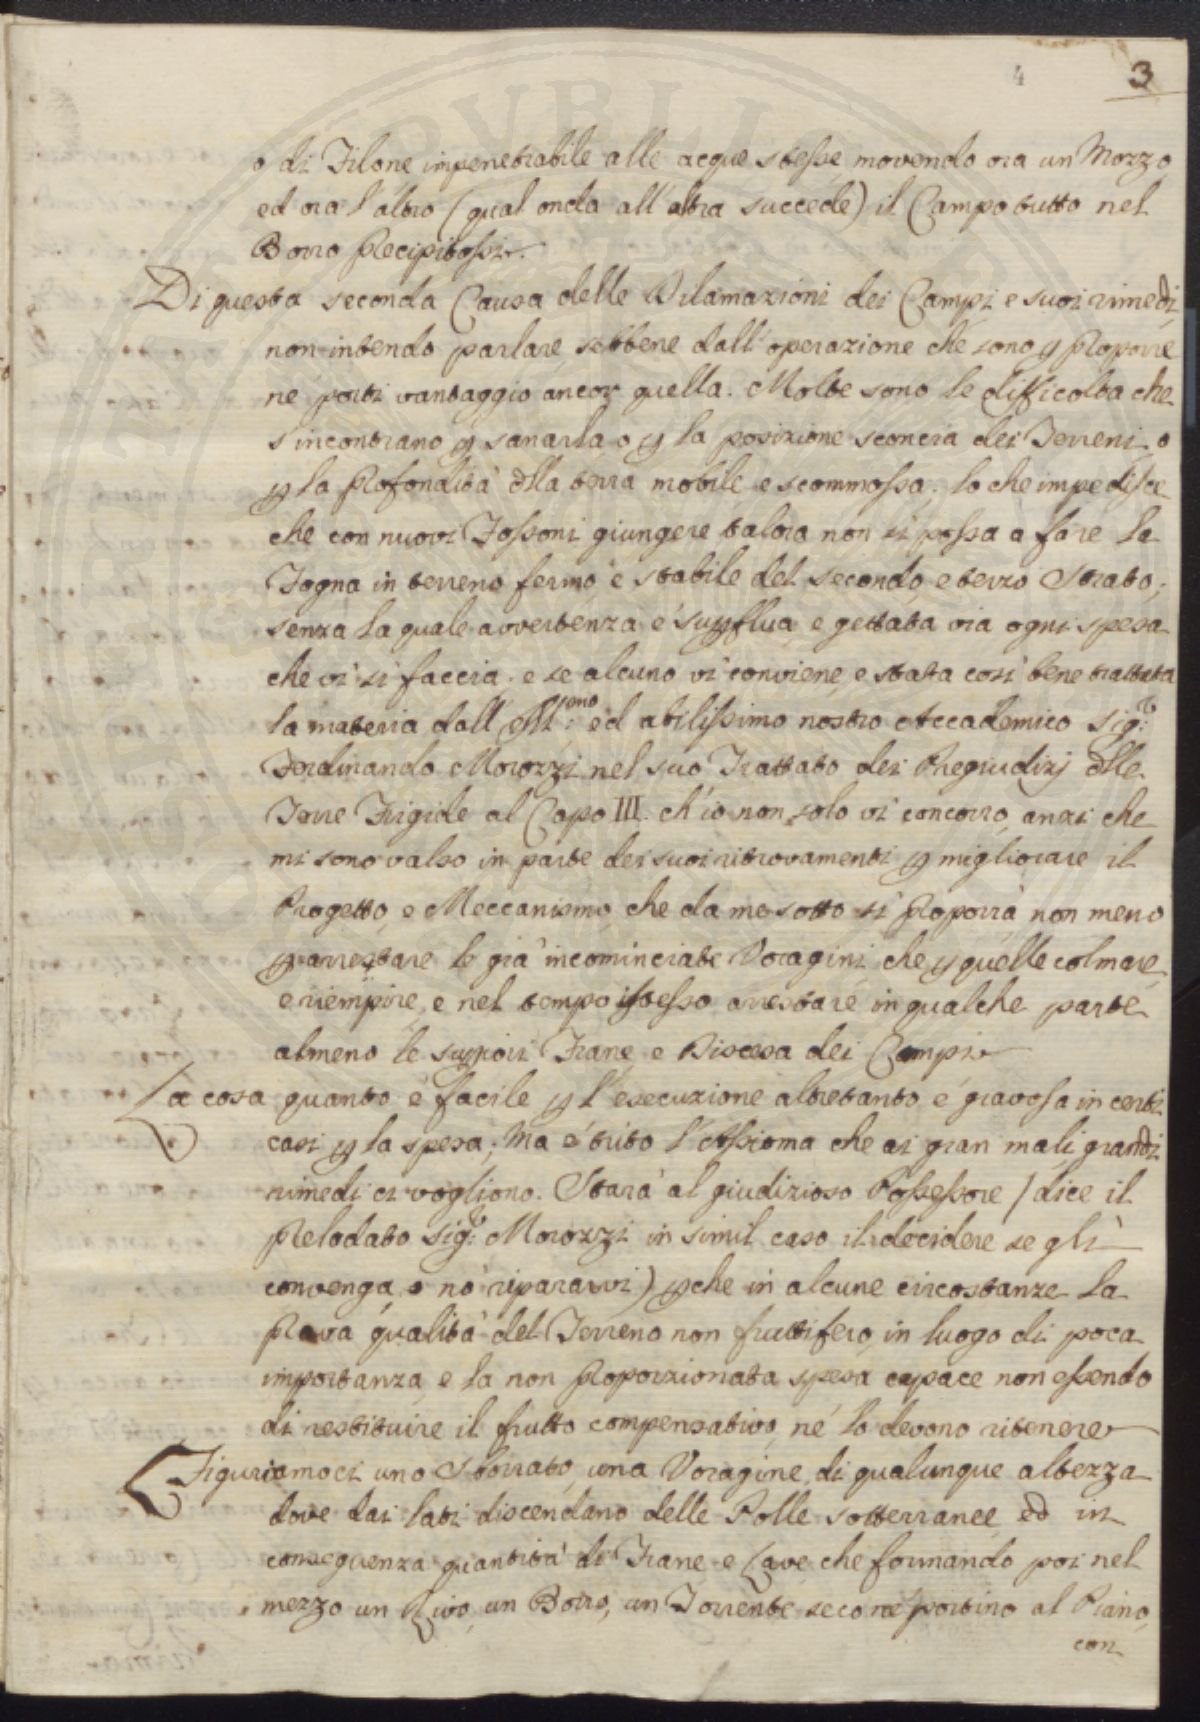 4 3
o di Filone impenetrabile alle acque stesse movendo ora un Mozzo
ed ora l'altro (qual onda all'altra succede) il Campo tutto nel
Borro Precipitossi.
Di questa seconda Causa delle Dilamazioni dei Campi e suoi rimedi
non intendo parlare sebbene dall'operazione che sono p Proporre
ne porti vantaggio ancor quella. Molte sono le difficolta che
s'incontrano p sanarla o p la posizione sconcia dei Terreni o
p la Profondità dlla terra mobile e scommossa. lo che impedisce
che con nuovi Fossoni giungere talora non si possa a fare la
Fogna in terreno fermo e stabile del secondo e terzo Strato;
senza la quale avvertenza é supflua e gettata via ogni spesa
che vi si faccia. e se alcuno vi conviene e stata cosi bene trattata
la materia dall' Ill:smo ed abilissimo nostro Accademico Sig:r
Ferdinando Morozzi nel suo Trattato dei Pregiudizj dlle
Terre Frigide al Capo III. ch'io non solo vi concorro, anzi che
mi sono valso in parte dei suoi ritrovamenti p migliorare il
Progetto, e Meccanismo che da me sotto si Proporrà non meno
p arrestare le già incominciate Voragini che p quelle colmare
e riempire, e nel tempo istesso arrestare in qualche parte
almeno le suppiori Frane e Discesa dei Campi
La cosa quanto è facile p l'esecuzione altretanto é gravosa in certi
casi p la spesa; Ma é trito l'Assioma che ai gran mali grandi
rimedi ci vogliono. Starà al giudizioso Possessore (dice il
Prelodato Sig:r Morozzi in simil caso il decidere se gli
convenga o nò ripararvi) pche in alcune circostanze la
Prava qualità del Terreno non fruttifero, in luogo di poca
importanza, e la non Proporzionata spesa capace non essendo
di restituire il frutto compensativo, né lo devono ritenere
Figuriamoci uno Sborrato, una Voragine di qualunque altezza
dove dai lati discendano delle Polle sotterranee ed in
conseguenza quantità di Frane e Lave che formando poi nel
mezzo un Rivo, un Borro, un Torrente seco ne portino al Piano
con